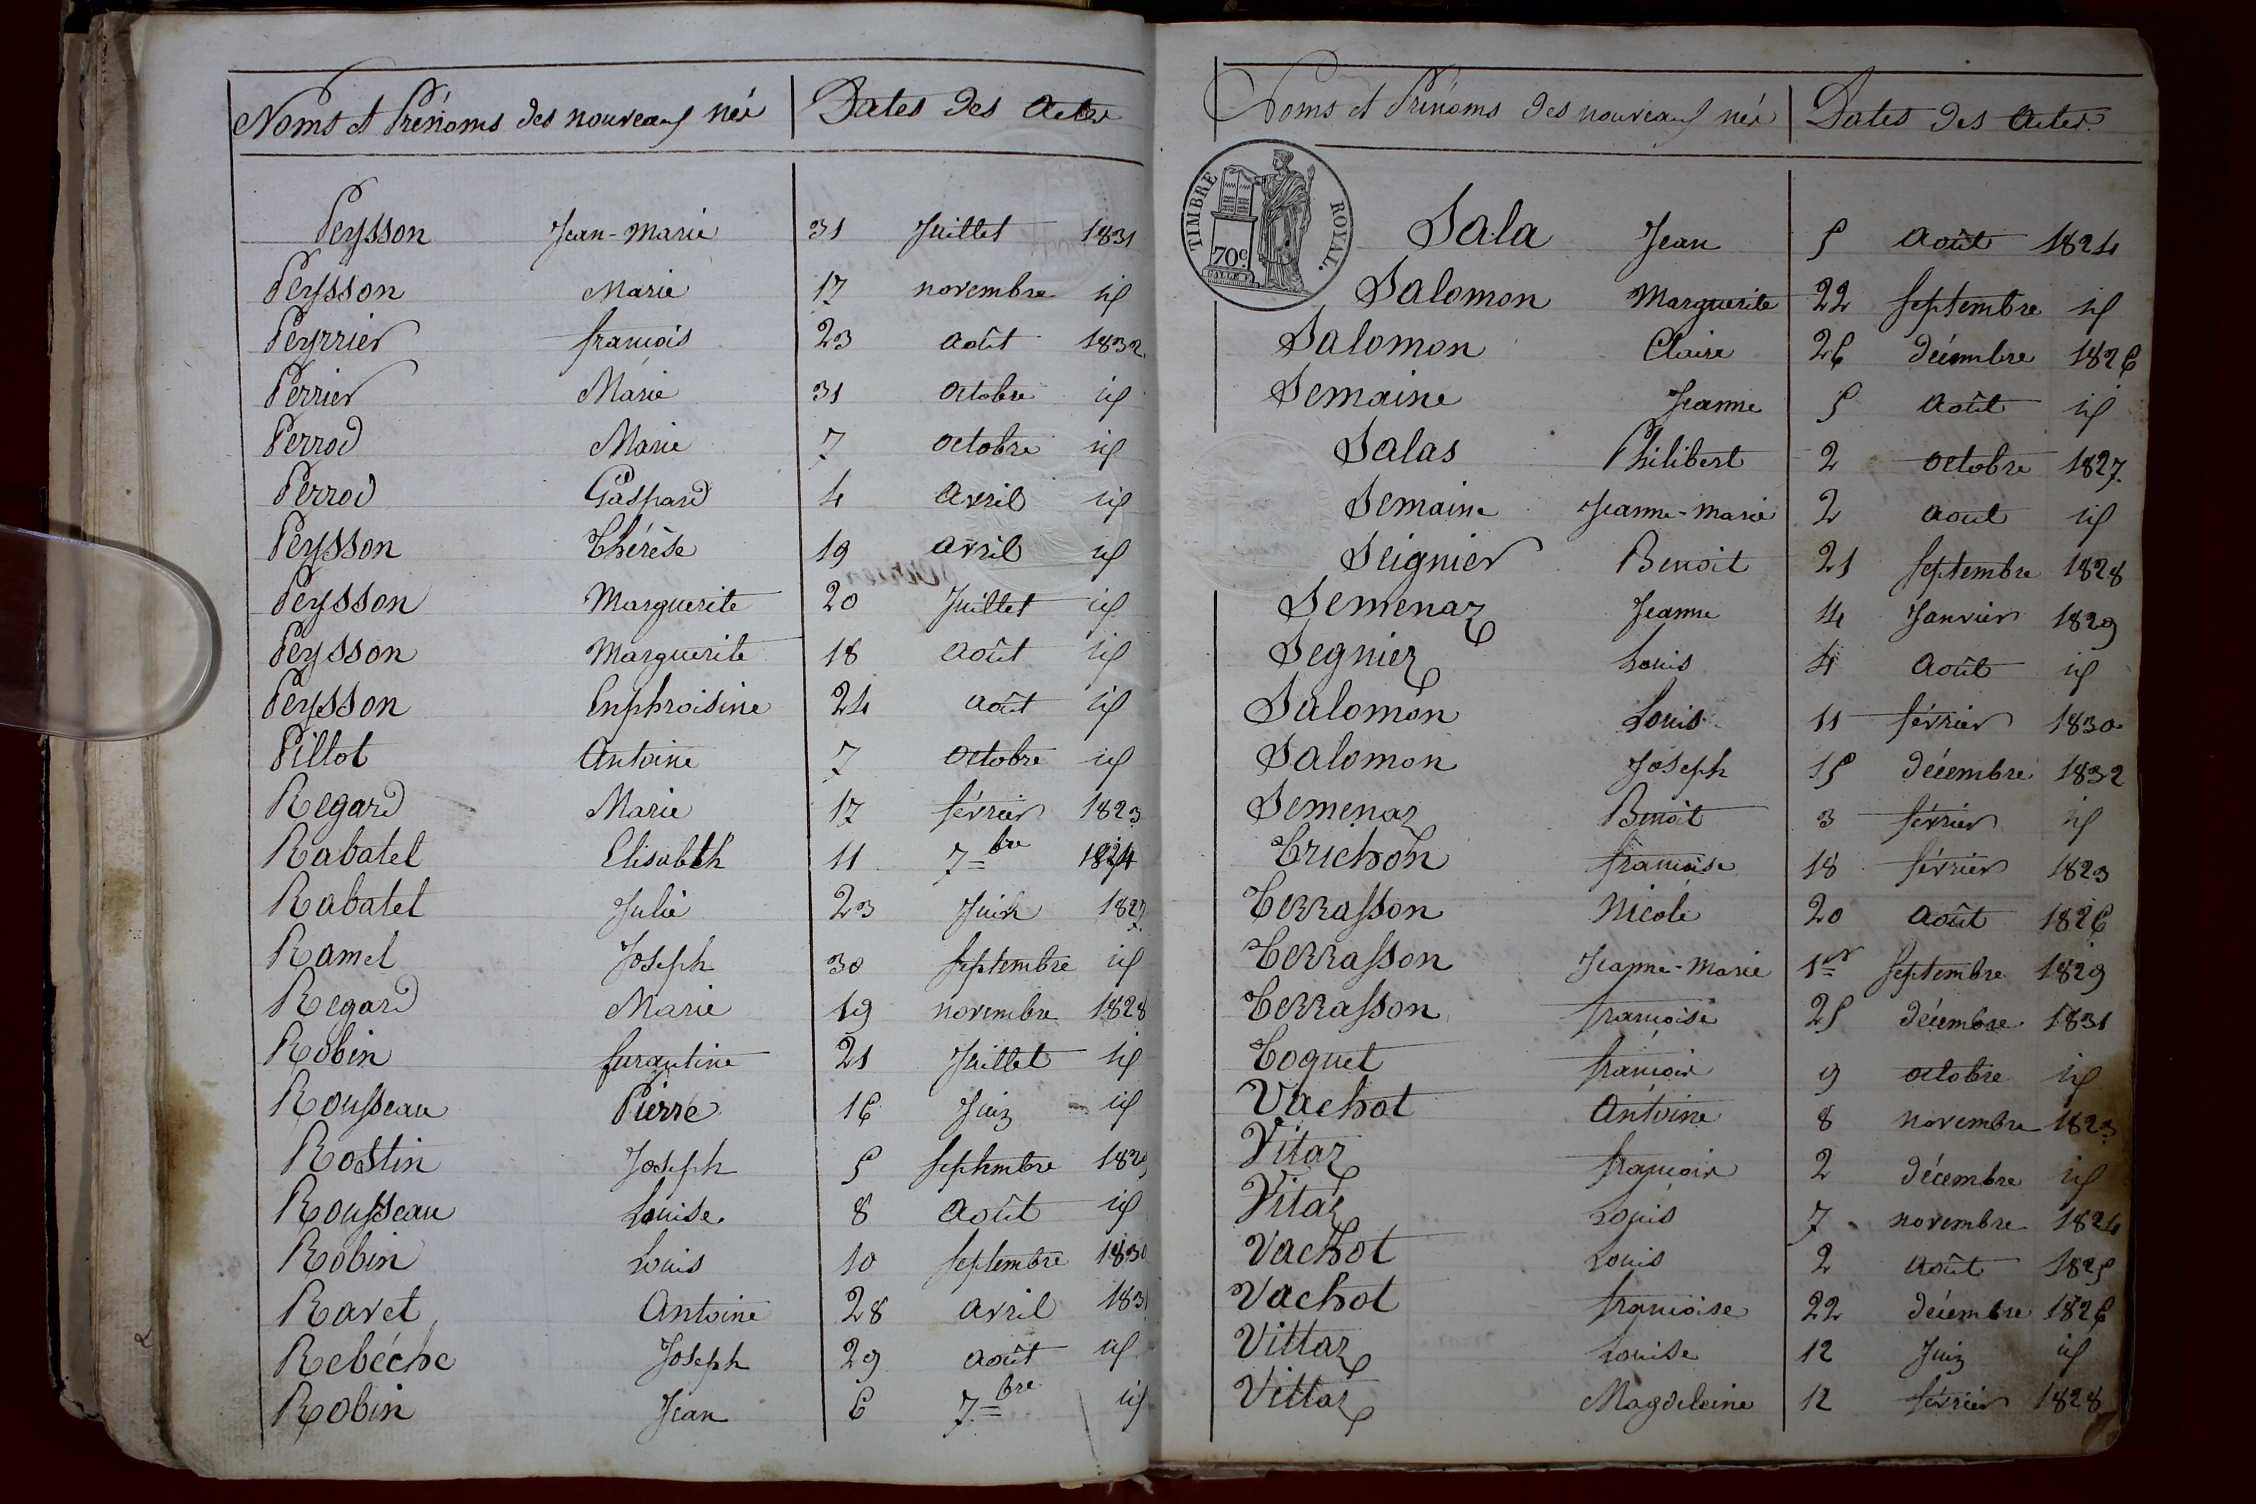 Noms et Prénoms des nouveaux nés Dates des Actes
Peysson Jean-Marie 31 Juillet 1831
Peysson Marie 17 novembre id
Peyrrier francois 23 Août 1832
Perrier Marie 31 Octobre id
Perrod Marie 7 octobre id
Perrod Gaspard 4 Avril id
Peysson Thérèse 19 avril id
Peysson Marguerite 20 Juillet id
Peysson Marguerite 18 Août id
Peysson Enphroisine 24 Août id
Pillot Antoine 7 Octobre id
Regard Marie 17 février 1823
Rabatel Elisabeth 11 7bre 1824
Rabatel Julie 23 Juin 1827
Ramel Joseph 30 Septembre id
Regard Marie 19 novembre 1828
Robin 21 Juillet id
Rousseau Pierre 16 Juin id
Rostin Joseph 5 Septembre 1829
Rousseau Louise 8 Août id
Robin Louis 10 Septembre 1830
Ravet Antoine 28 Avril 1831
Rebéche Joseph 29 Août id
Robin Jean 6 7bre id
Noms et Prénoms des nouveaux nés Dates des Actes
TIMBRE ROYAL.
70c
Sala Jean 5 Août 1824
Salomon Marguerite 22 Septembre id
Salomon Claire 26 décembre 1826
Semaine Jeanne 5 Août id
Salas Philibert 2 Octobre 1827
Semaine Jeanne-marie 2 Aout id
Seignier Benoit 21 Septembre 1828
Semenaz Jeanne 4 Janvier 1829
Segniez Louis 4 Août id
Salomon Louis 11 février 1830
Salomon Joseph 15 décembre 1832
Semenaz Benoit 3 février id
Trichon francoise 18 février 1823
Terrasson Nicole 20 Août 1826
Terrasson Jeanne-Marie 1er Septembre 1829
Terrasson francoise 25 décembre 1831
Toquet francois 9 octobre id
Vachot Antoine 8 novembre 1823
Vitaz francois 2 décembre id
Vitaz Louis 7 novembre 1824
Vachot Louis 2 Août 1825
Vachot francoise 22 décembre 1826
Vittaz Louise 12 Juin id
Vittaz Magdeleine 12 février 1828